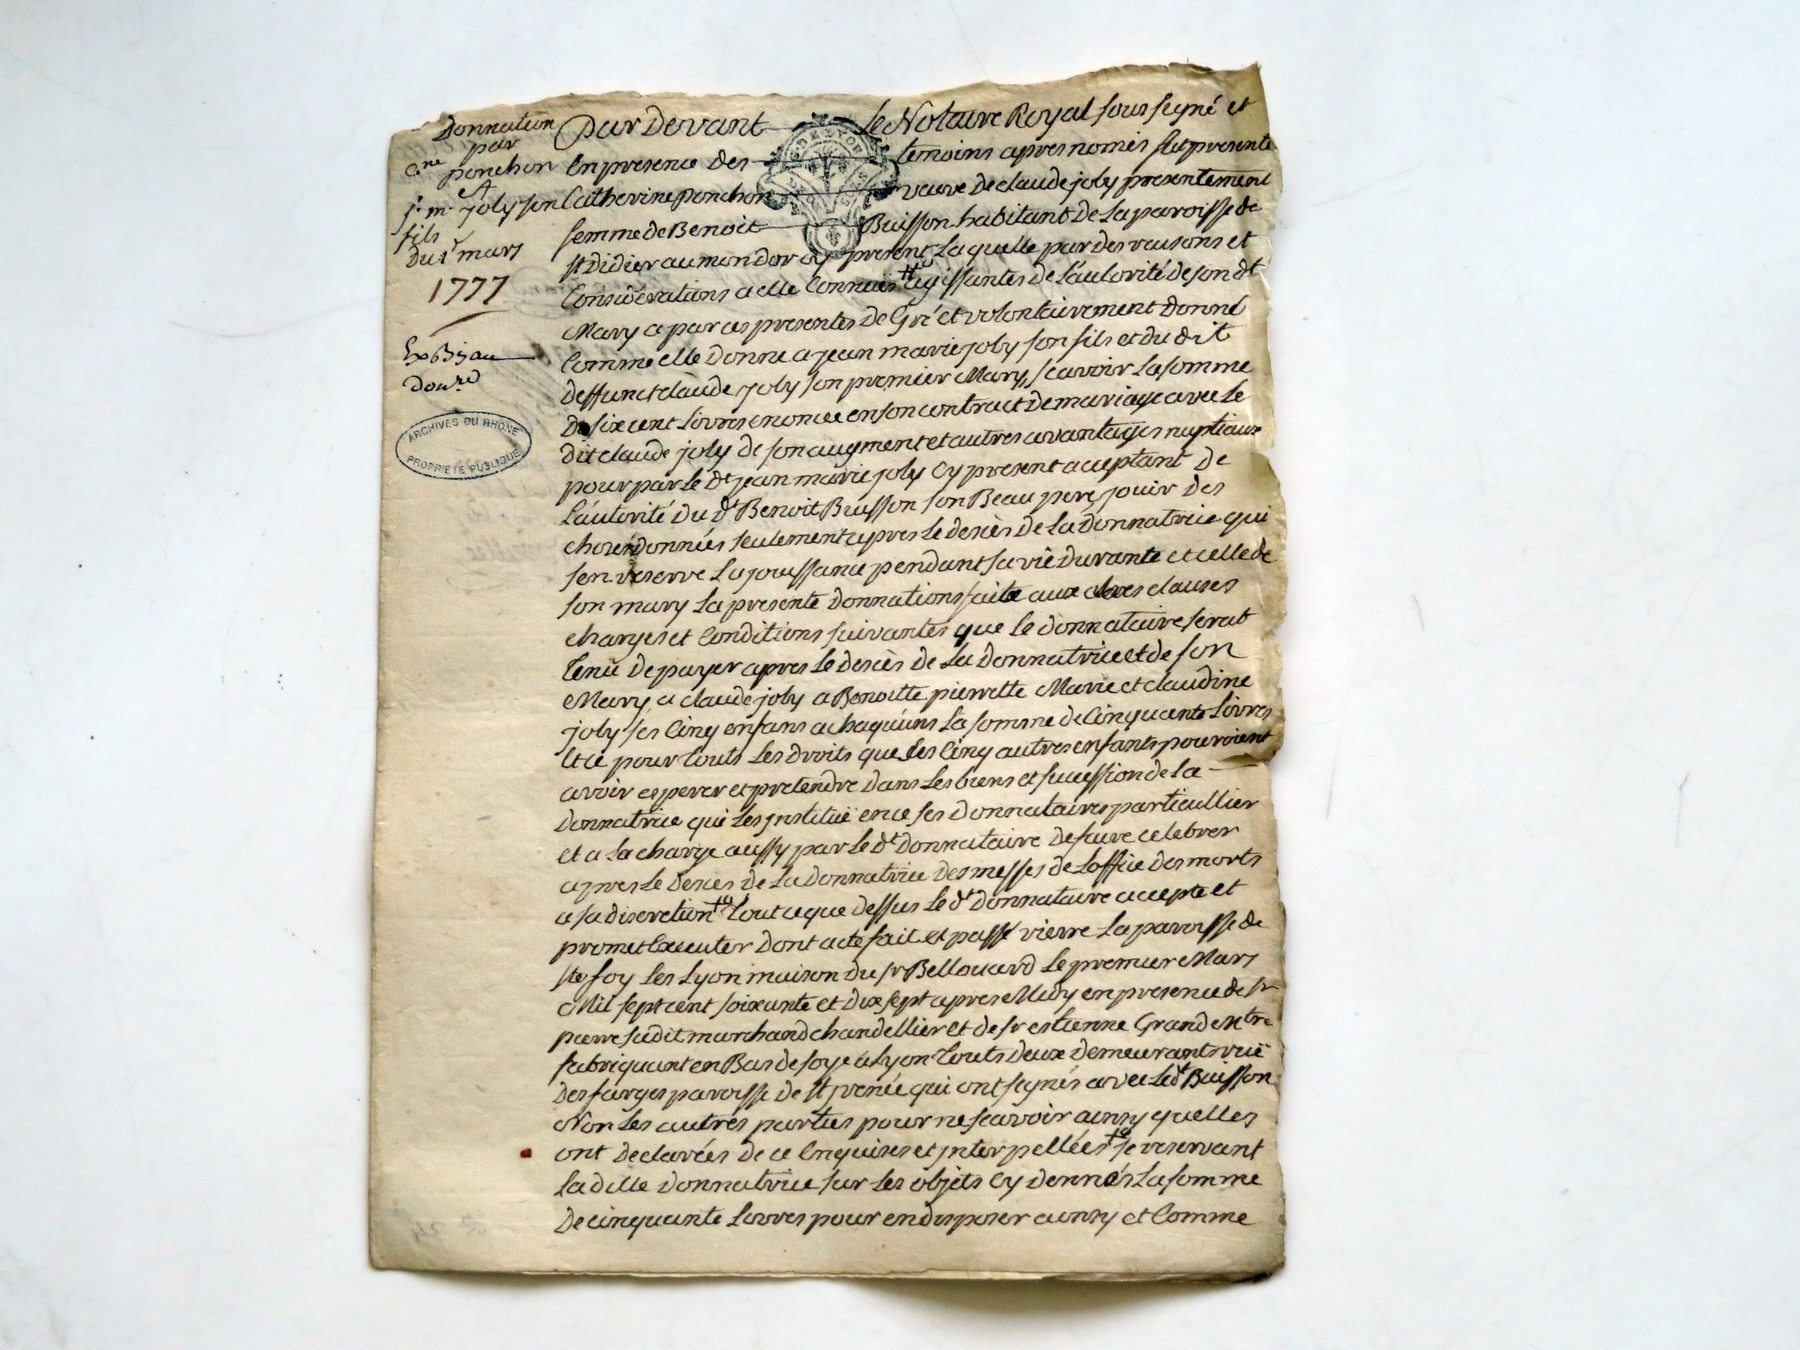 Donnation
par
Cne ponchon
A
j. m. joly son
fils
Du 1r mars
1777
Exp
ARCHIVES DU RHONE
PROPRIETE PUBLIQUE
Par Devant le Notaire Royal sous signé et
En presence des temoins apres només fut presente
Catherine ponchon veuve de claude joly presentement
femme de Benoit Buisson habitant de La paroisse de
st Didier au mon dor cy present Laquelle par des raisons et
Considerations a elle Connues agissantes de L'autorité de son dt
Mary a par ces presentes de Gré et volontairement Donné
Comme elle Donne a jean marie joly son fils et du dit
deffunct claude joly son premier Mary, scavoir La somme
De six cent Livres enoncée en son contract de mariage avec Le
dit claude joly de son augment et autres avantages nuptiaux
pour par Le dt jean marie joly Cy present acceptant De
L'autorité Du dt Benoit Buisson son Beau pere jouir des
choses données seulement apres Le deces de La donnatrice qui
sen reserve La jouissance pendant sa vie Durante et celle de
son mary La presente Donnation faite aux clauses
charges et Conditions suivantes que Le donnataire serat
Tenu De payer apres Le deces de La Donnatrice et de son
Mary, a claude joly a Benoitte, pierrette Marie et claudine
joly ses Cinq enfans a chaquuns La somme de Cinquante Livres
Et ce pour touts Les Droits que Les Cinq autres enfants pouroient
avoir esperer et pretendre dans Les biens et succession de La
Donnatrice qui Les jnstitue en ce ses Donnataires particullier
et a La charge aussy par Le dt Donnataire de faire celebrer
apres Le deces de La Donnatrice des messes de L'office des morts
a sa discretion Tout ce que dessus Le dt Donnataire accepte et
promet Executer Dont acte fait et passé riere La paroisse de
ste foy Les Lyon maison du sr Bellouard Le premier Mars
Mil sept cent soixante et dix sept apres Midy en presence de sr
pierre marchand chandellier et de sr estienne Grand Mtre
fabriquant en Bas de soye a Lyon Touts deux demeurants ruë
des farges paroisse de st jrenée qui ont signés avec Le dt Buisson
Non Les autres parties pour ne scavoir ainsy quelles
ont declarées de ce Enquises et jnterpellées se reservant
La ditte Donnatrice sur Les objets Cy donnés La somme
De cinquante Livres pour en disposer ainsy et Comme